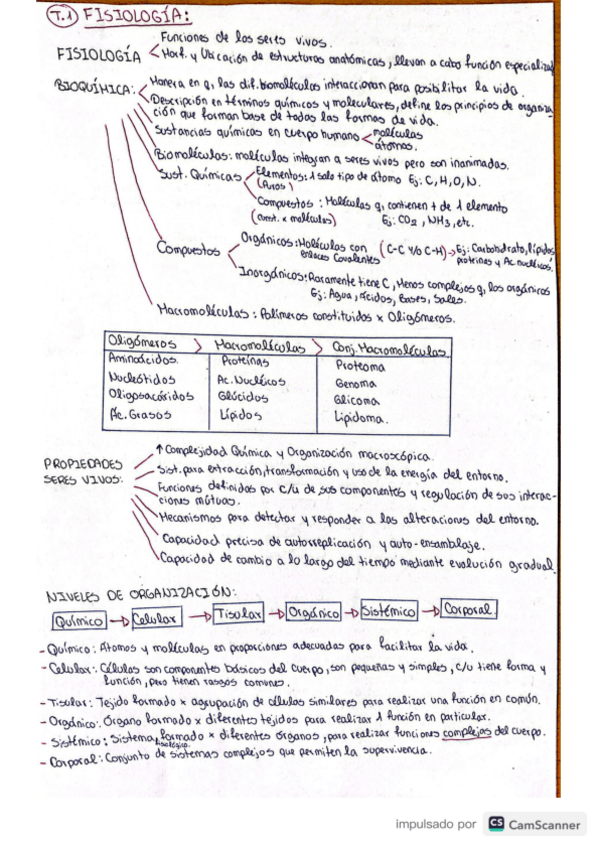 T.1 FISIOLOGÍA:
FISIOLOGÍA
Funciones de los seres vivos.
Morf. y Ubicación de estructuras anatómicas, llevan a cabo función especializad
BIOQUÍMICA:
Manera en q, las dif. biomoléculas interaccionan para posibilitar la vida.
Descripción en términos químicos y moleculares, define los principios de organiza-
ción que forman base de todas las formas de vida.
Sustancias químicas en cuerpo humano
moléculas
átomos.
Biomoléculas: moléculas integran a seres vivos pero son inanimadas.
Sust. Químicas
Elementos: 1 solo tipo de átomo Ej: C, H, O, N.
(Puros)
Compuestos: Moléculas q, contienen + de 1 elemento
(const. x moléculas) Ej: CO2, NH3, etc.
Compuestos
Orgánicos: Moléculas con (C-C y/o C-H) → Ej: Carbohidrato, lípidos
enlaces Covalentes proteínas y Ac. nucleicos.
Inorgánicos: Raramente tiene C, Menos complejos q, los orgánicos
Ej: Agua, Ácidos, Bases, Sales.
Macromoléculas: Polímeros constituidos x Oligómeros.
Oligómeros > Macromoléculas > Conj. Macromoléculas
Aminoácidos. Proteínas Proteoma
Nucleótidos Ac. Nucléicos Genoma
Oligosacáridos Glúcidos Glicoma
Ác. Grasos Lípidos Lipidoma.
PROPIEDADES
SERES VIVOS:
↑ Complejidad Química y Organización macroscópica.
Sist. para extracción, transformación y uso de la energía del entorno.
Funciones definidas por c/u de sus componentes y regulación de sus interac-
ciones mútuas.
Mecanismos para detectar y responder a las alteraciones del entorno.
Capacidad precisa de autorreplicación y auto-ensamblaje.
Capacidad de cambio a lo largo del tiempo mediante evolución gradual.
NIVELES DE ORGANIZACIÓN:
Químico → Celular → Tisular → Orgánico → Sistémico → Corporal
- Químico: Átomos y moléculas en proporciones adecuadas para facilitar la vida.
- Celular: Células son componentes básicos del cuerpo, son pequeñas y simples, c/u tiene forma y
función, pero tienen rasgos comunes.
- Tisular: Tejido formado x agrupación de células similares para realizar una función en común.
- Orgánico: Órgano formado x diferentes tejidos para realizar 1 función en particular.
- Sistémico: Sistema formado x diferentes órganos, para realizar funciones complejas del cuerpo.
fisiológico.
- Corporal: Conjunto de sistemas complejos que permiten la supervivencia.
impulsado por CS CamScanner